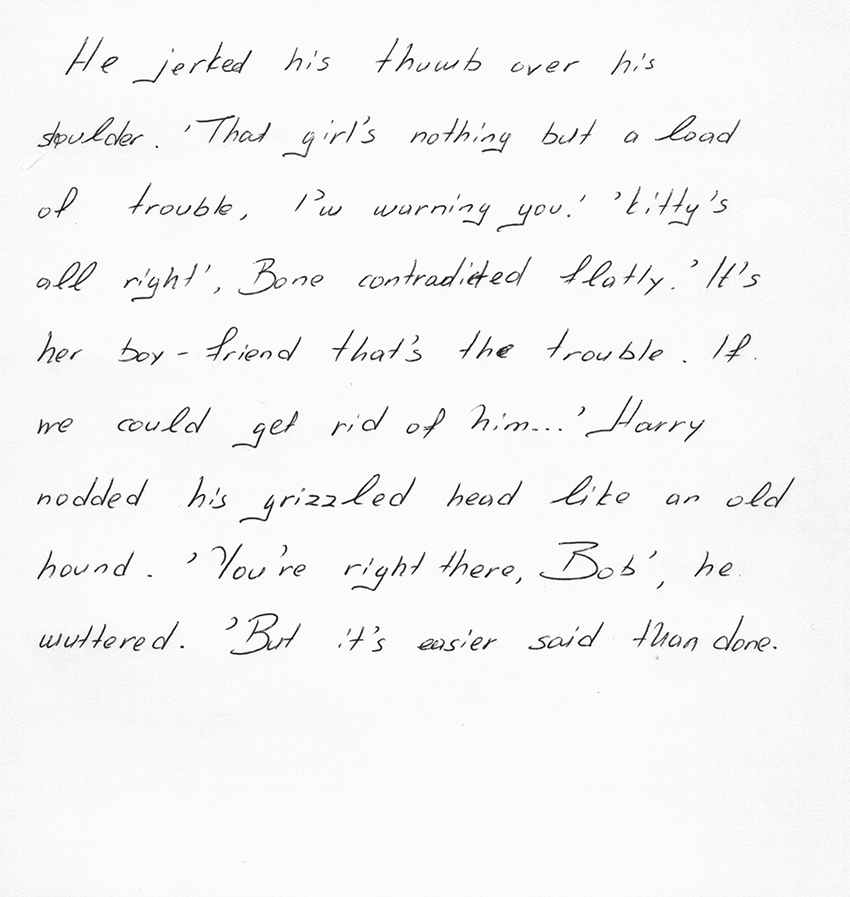 He jerked his thumb over his
shoulder. 'That girl's nothing but a load
of trouble, I'm warning you.' 'Kitty's
all right', Bone contradicted flatly. 'It's
her boy-friend that's the trouble. If
we could get rid of him...' Harry
nodded his grizzled head like an old
hound. 'You're right there, Bob', he
muttered. 'But it's easier said than done.